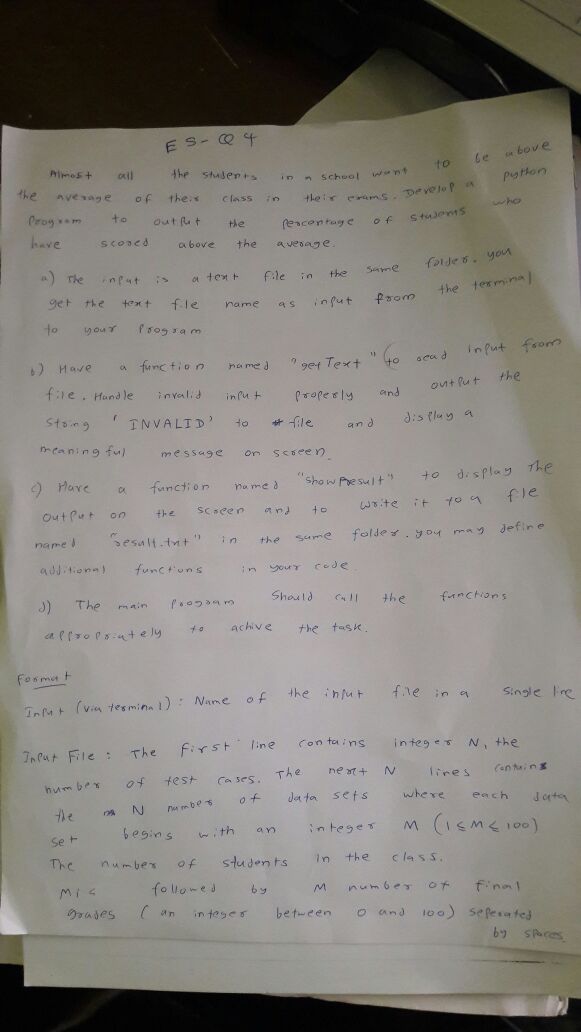 ES-Q4
Almost all the students in a school want to be above
the average of their class in their exams. Develop a python
Program to output the percentage of students who
have scored above the average.
a) The input is a text file in the same folder. you
get the text file name as input from the terminal
to your Program
b) Have a function named "getText" to read input from
file. Handle invalid input properly and output the
string 'INVALID' to file and display a
meaning ful message on screen.
c) Have a function named "show Result" to display the
output on the screen and to write it to a file
named "result.txt" in the same folder. you may define
additional functions in your code.
d) The main program should call the functions
appropriately to achive the task.
Format
Input (via terminal) : Name of the input file in a single line
Input File : The first line contains integer N, the
number of test cases. The next N lines contains
the N number of data sets where each data
set begins with an integer M (1≤M≤100)
The number of students in the class.
M is followed by M number of final
grades (an integer between 0 and 100) seperated
by spaces.